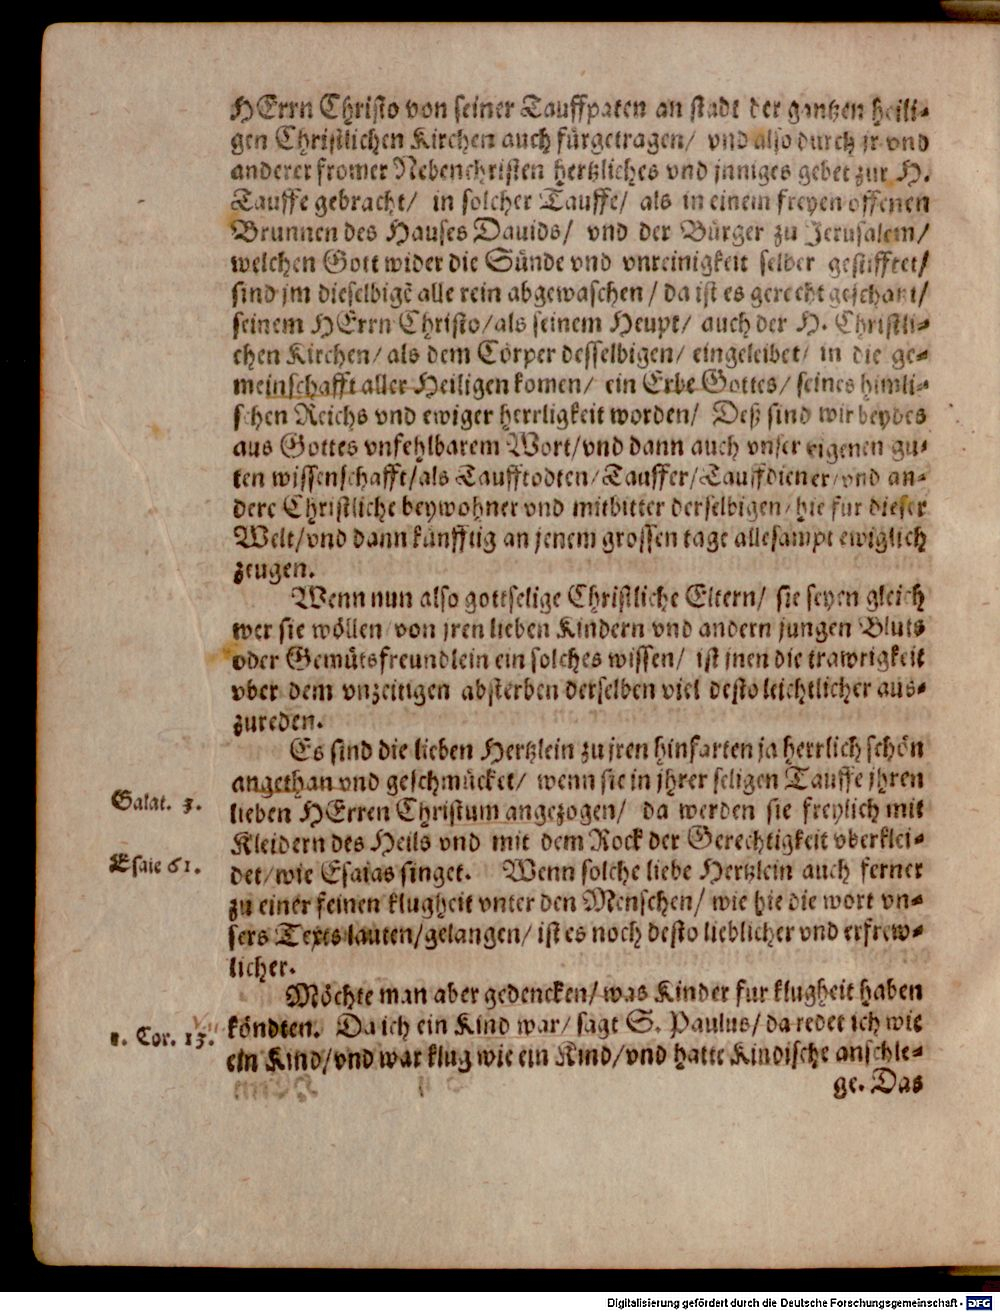 HErrn Christo von seiner Tauffpaten an stadt der gantzen heili-
gen Christlichen Kirchen auch fürgetragen/ vnd also durch jr vnd
anderer fromer Nebenchristen hertzliches vnd jnniges gebet zur H.
Tauffe gebracht/ in solcher Tauffe/ als in einem freyen offenen
Brunnen des Hauses Dauids/ vnd der Bürger zu Jerusalem/
welchen Gott wider die Sünde vnd vnreinigkeit selber gestifftet/
sind jm dieselbigē alle rein abgewaschen/ da ist es gerecht geschatzt/
seinem HErrn Christo/als seinem Heupt/ auch der H. Christli-
chen Kirchen/ als dem Cörper desselbigen/ eingeleibet/ in die ge-
meinschafft aller Heiligen komen/ ein Erbe Gottes/ seines himli-
schen Reichs vnd ewiger herrligkeit worden/ Deß sind wir beydes
aus Gottes vnfehlbarem Wort/vnd dann auch vnser eigenen gu-
ten wissenschafft/als Taufftodten/Tauffer/Tauffdiener/vnd an-
dere Christliche beywohner vnd mitbitter derselbigen/hie für dieser
Welt/vnd dann künfftig an jenem grossen tage allesampt ewiglich
zeugen.
Wenn nun also gottselige Christliche Eltern/ sie seyen gleich
wer sie wöllen/von jren lieben Kindern vnd andern jungen Bluts
oder Gemütsfreundlein ein solches wissen/ ist jnen die trawrigkeit
vber dem vnzeitigen absterben derselben viel desto leichtlicher aus-
zureden.
Es sind die lieben Hertzlein zu jren hinfarten ja herrlich schön
angethan vnd geschmücket/ wenn sie in jhrer seligen Tauffe jhren
Galat. 3.
lieben HErren Christum angezogen/ da werden sie freylich mit
Kleidern des Heils vnd mit dem Rock der Gerechtigkeit vberklei-
Esaie 61.
det/wie Esaias singet. Wenn solche liebe Hertzlein auch ferner
zu einer feinen klugheit vnter den Menschen/ wie hie die wort vn-
sers Texts lauten/gelangen/ ist es noch desto lieblicher vnd erfrew-
licher.
Möchte man aber gedencken/was Kinder fur klugheit haben
1. Cor. 13.
köndten. Da ich ein Kind war/ sagt S. Paulus/ da redet ich wie
ein Kind/vnd war klug wie ein Kind/vnd hatte Kindische anschle-
ge. Das
Digitalisierung gefördert durch die Deutsche Forschungsgemeinschaft - DFG